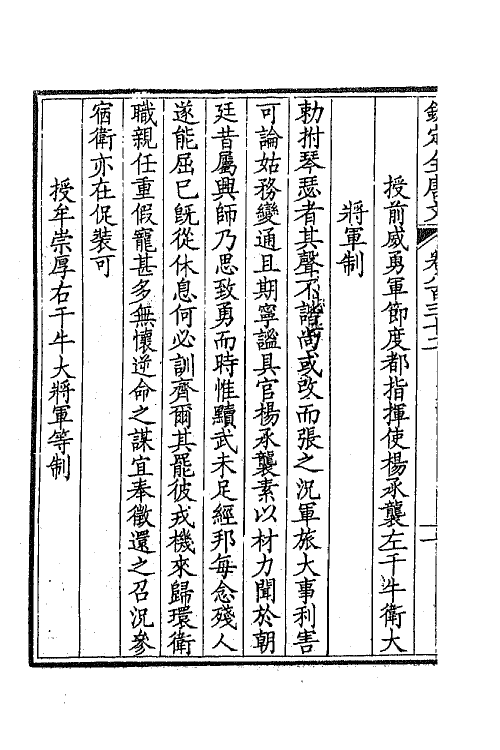 欽定全唐文　卷八百三十二　十一
授前威勇軍節度都指揮使楊承襲左千牛衛大
將軍制
勅拊琴瑟者其聲不諧尚或改而張之況軍旅大事利害
可論姑務變通且期寧謐具官楊承襲素以材力聞於朝
廷昔屬興師乃思致勇而時惟黷武未足經邦每念殘人
遂能屈已旣從休息何必訓齊爾其罷彼戎機來歸環衛
職親任重假寵甚多無懷逆命之謀宜奉徵還之召況參
宿衛亦在促裝可
授牟崇厚右千牛大將軍等制